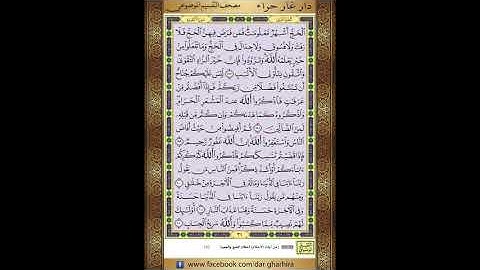 دار غار حراء
مصحف التقسيم الموضوعي
الْحَجُّ أَشْهُرٌ مَّعْلُومَاتٌ فَمَن فَرَضَ فِيهِنَّ الْحَجَّ فَلَا
رَفَثَ وَلَا فُسُوقَ وَلَا جِدَالَ فِي الْحَجِّ وَمَا تَفْعَلُوا مِنْ
خَيْرٍ يَعْلَمْهُ اللَّهُ وَتَزَوَّدُوا فَإِنَّ خَيْرَ الزَّادِ التَّقْوَىٰ
وَاتَّقُونِ يَا أُولِي الْأَلْبَابِ ۝ لَيْسَ عَلَيْكُمْ جُنَاحٌ
أَن تَبْتَغُوا فَضْلًا مِّن رَّبِّكُمْ فَإِذَا أَفَضْتُم مِّنْ
عَرَفَاتٍ فَاذْكُرُوا اللَّهَ عِندَ الْمَشْعَرِ الْحَرَامِ
وَاذْكُرُوهُ كَمَا هَدَاكُمْ وَإِن كُنتُم مِّن قَبْلِهِ
لَمِنَ الضَّالِّينَ ۝ ثُمَّ أَفِيضُوا مِنْ حَيْثُ أَفَاضَ
النَّاسُ وَاسْتَغْفِرُوا اللَّهَ إِنَّ اللَّهَ غَفُورٌ رَّحِيمٌ ۝
فَإِذَا قَضَيْتُم مَّنَاسِكَكُمْ فَاذْكُرُوا اللَّهَ كَذِكْرِكُمْ
آبَاءَكُمْ أَوْ أَشَدَّ ذِكْرًا فَمِنَ النَّاسِ مَن يَقُولُ
رَبَّنَا آتِنَا فِي الدُّنْيَا وَمَا لَهُ فِي الْآخِرَةِ مِنْ خَلَاقٍ ۝
وَمِنْهُم مَّن يَقُولُ رَبَّنَا آتِنَا فِي الدُّنْيَا حَسَنَةً
وَفِي الْآخِرَةِ حَسَنَةً وَقِنَا عَذَابَ النَّارِ ۝ أُولَٰئِكَ
لَهُمْ نَصِيبٌ مِّمَّا كَسَبُوا وَاللَّهُ سَرِيعُ الْحِسَابِ ۝
٣١
www.facebook.com/dar.gharhira